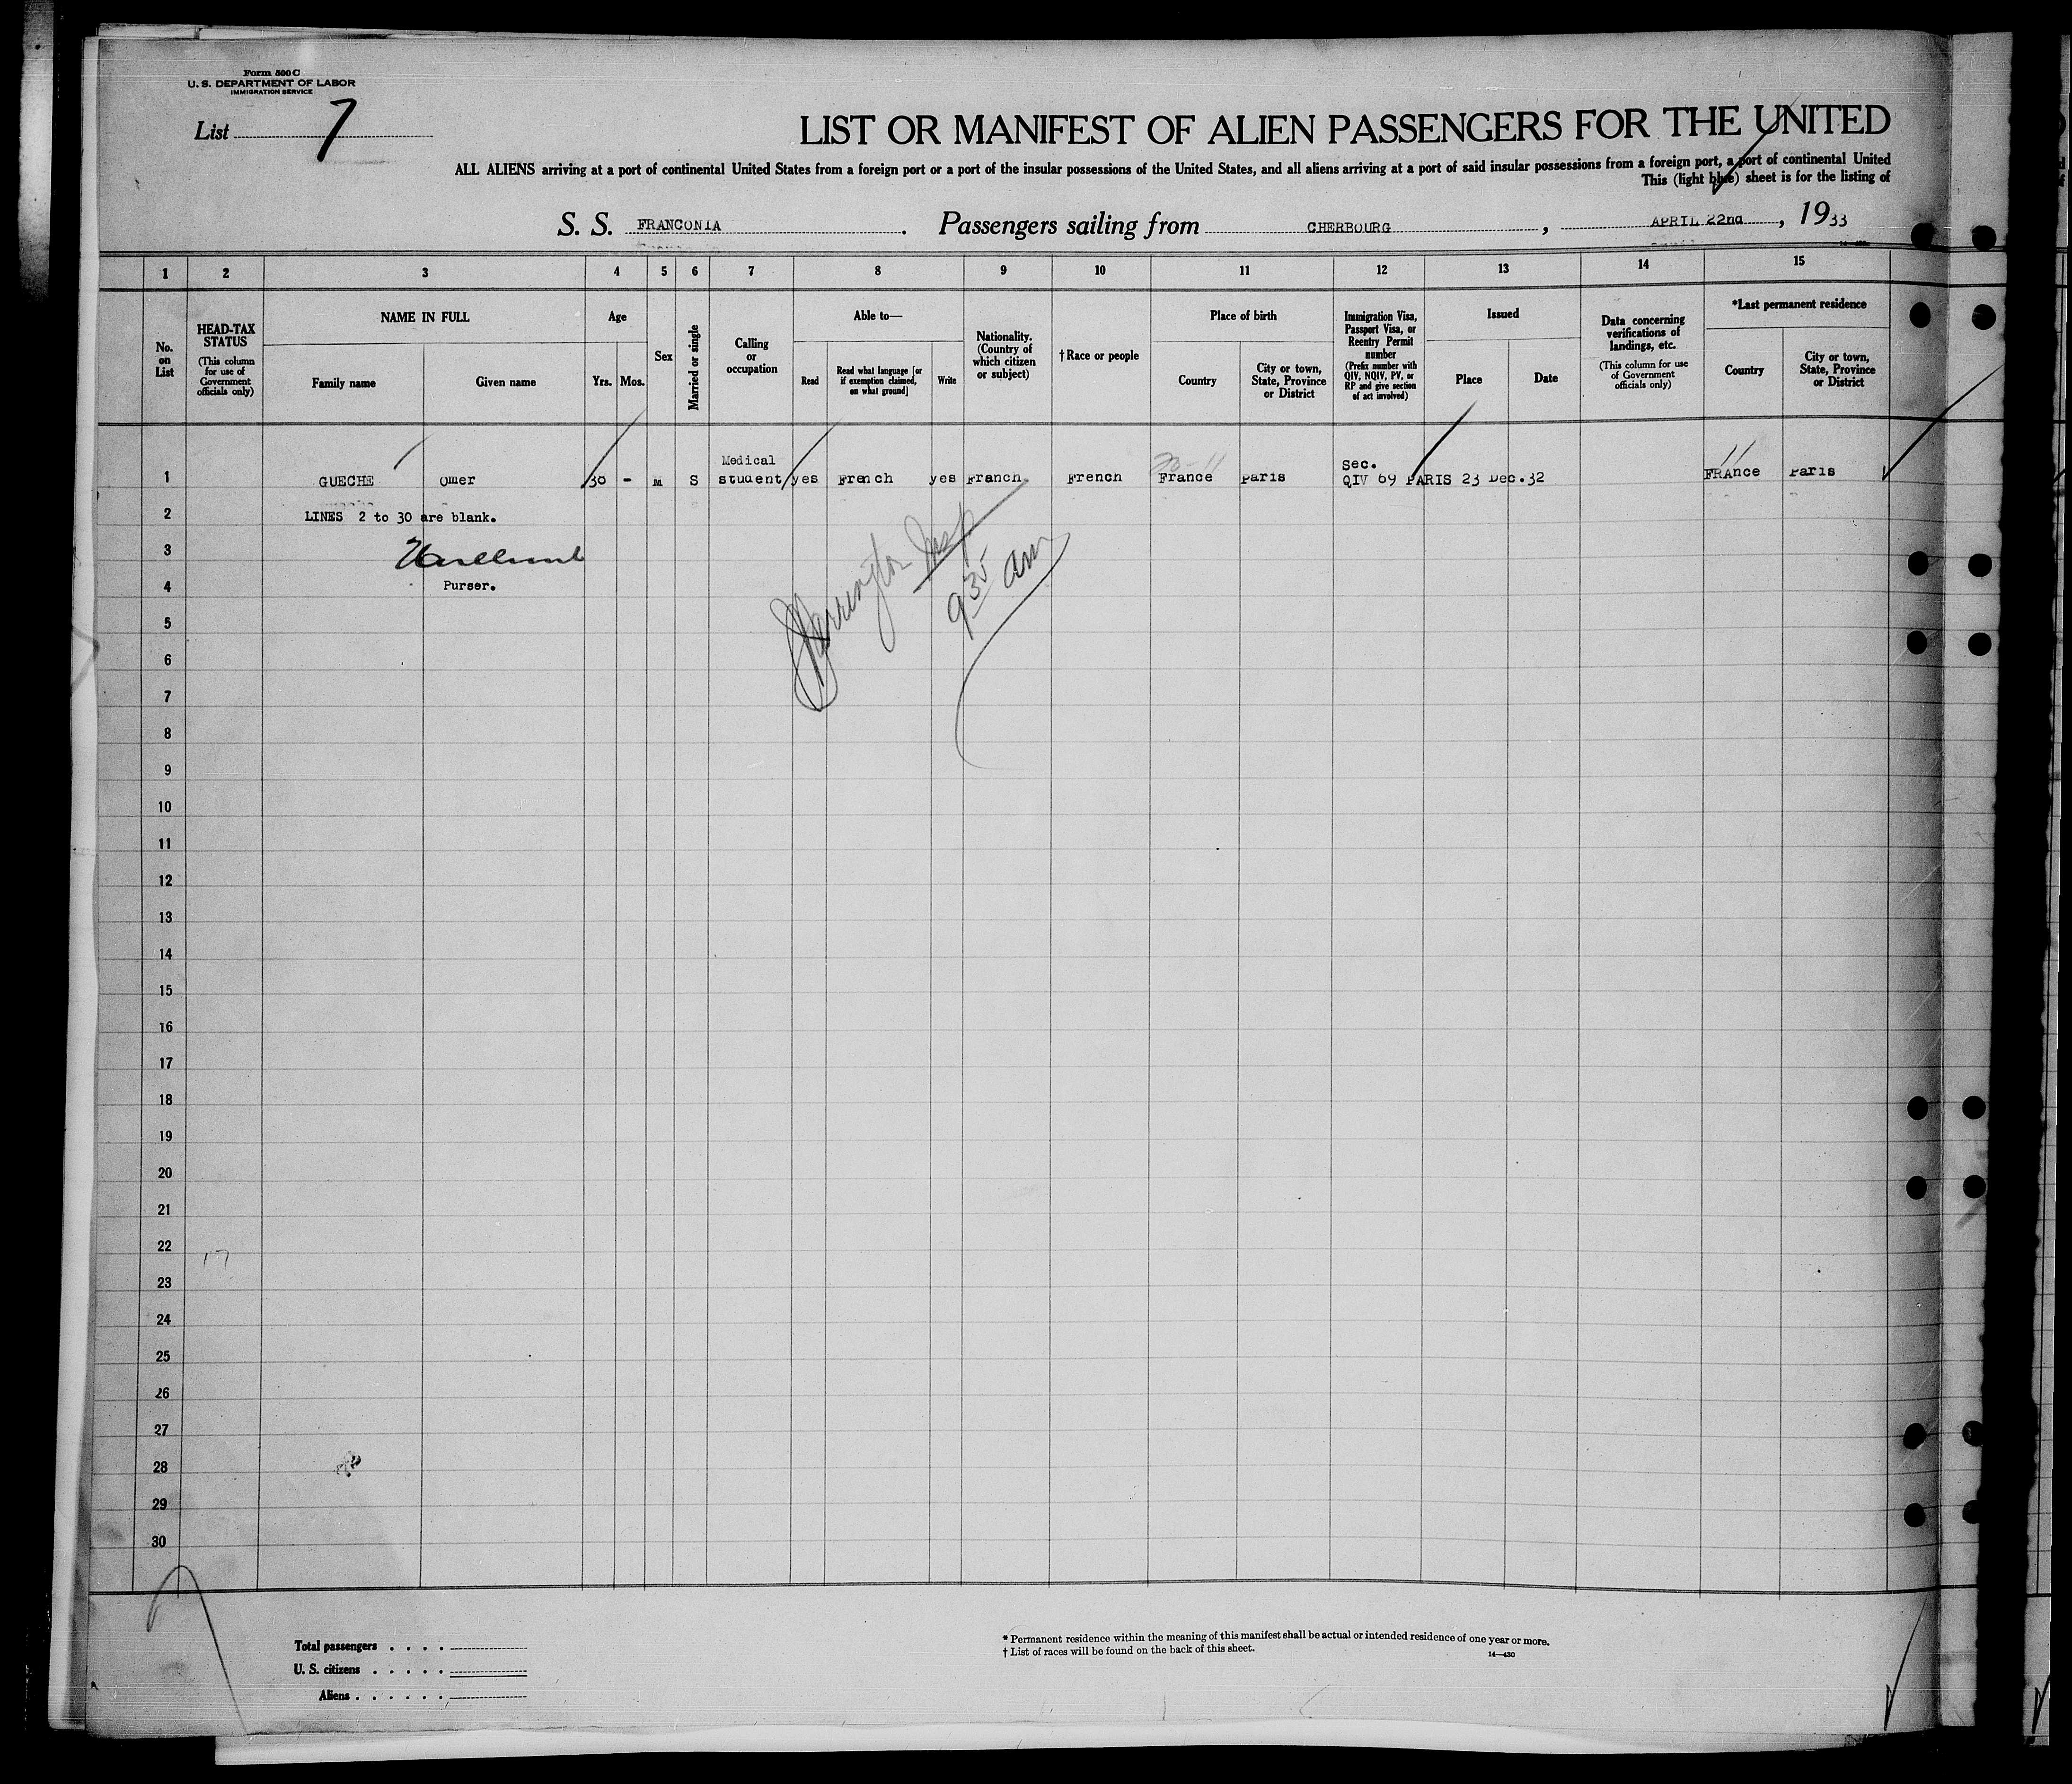 Form 500 C
U. S. DEPARTMENT OF LABOR
IMMIGRATION SERVICE
List 7
LIST OR MANIFEST OF ALIEN PASSENGERS FOR THE UNITED
ALL ALIENS arriving at a port of continental United States from a foreign port or a port of the insular possessions of the United States, and all aliens arriving at a port of said insular possessions from a foreign port, a port of continental United
This (light blue) sheet is for the listing of
S. S. FRANCONIA . Passengers sailing from CHERBOURG , APRIL 22nd , 1933
1 2 3 4 5 6 7 8 9 10 11 12 13 14 15
No. on List
HEAD-TAX STATUS
(This column for use of Government officials only)
NAME IN FULL
Family name
Given name
Age
Yrs. Mos.
Sex
Married or single
Calling or occupation
Able to—
Read
Read what language [or if exemption claimed, on what ground]
Write
Nationality. (Country of which citizen or subject)
†Race or people
Place of birth
Country
City or town, State, Province or District
Immigration Visa, Passport Visa, or Reentry Permit number
(Prefix number with QIV, NQIV, PV, or RP and give section of act involved)
Issued
Place
Date
Data concerning verifications of landings, etc.
(This column for use of Government officials only)
*Last permanent residence
Country
City or town, State, Province or District
1 GUECHE Omer 30 - M S Medical student yes French yes French French France Paris Sec. QIV 69 PARIS 23 Dec.32 FRAnce Paris
20-11
11
2 LINES 2 to 30 are blank.
3
4 Purser.
Harrington Insp
9 35 am
5
6
7
8
9
10
11
12
13
14
15
16
17
18
19
20
21
22 17
23
24
25
26
27
28
29
30
Total passengers . . . .
U. S. citizens . . . . .
Aliens . . . . . .
* Permanent residence within the meaning of this manifest shall be actual or intended residence of one year or more.
† List of races will be found on the back of this sheet.
14—430